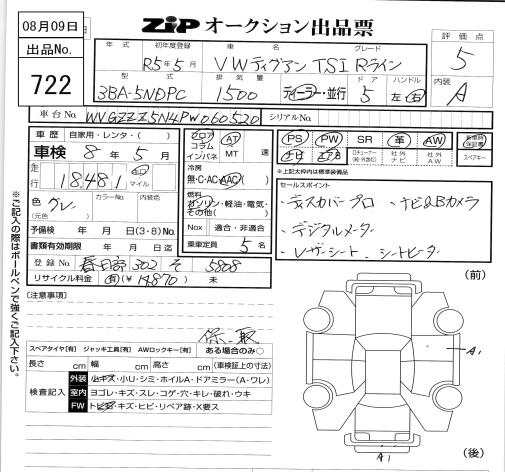 08月09日
ZIP オークション出品票
出品No. 722
年式 初年度登録 車名 グレード 評価点
R5年5月 VWティグアン TSI Rライン 5
型式 排気量 ドア ハンドル 内装
3BA-5NDPC 1500 ディーラー・並行 5 左・右 A
車台No WVGZZZ5N4PW060520 シリアルNo
車歴 自家用・レンタ・( )
フロア コラム インパネ AT MT 速
PS PW SR 革 AW
ナビ エアB
※上記太枠内は標準装備品
車検 8年5月
走行 18,481 マイル
冷房 無・C・AC・AAC( )
燃料 ガソリン・軽油・電気・その他( )
色 グレー カラーNo. 内装色
(元色 )
セールスポイント
・ディスカバープロ ・ナビ&Bカメラ
・デジタルメータ
・レザーシート、シートヒータ
予備検 年 月 日(3・8)No.
Nox 適合・非適合
書類有効期限 年 月 日迄
乗車定員 5 名
登録No 春日部 302 そ 5808
リサイクル料金 有(¥ 14,870) 未
(注意事項)
保、取
(前)
スペアタイヤ[有] ジャッキ工具[有] AWロックキー[有] ある場合のみ○
長さ cm 幅 cm 高さ cm (車検証上の寸法)
検査記入
外装 小キズ・小リ・シミ・ホイルA・ドアミラー(A・ワレ)
室内 ヨゴレ・キズ・スレ・コゲ・穴・キレ・破れ・ウキ
FW トビ石・キズ・ヒビ・リペア跡・X要ス
A1
A1
(後)
※ご記入の際はボールペンで強くご記入下さい。